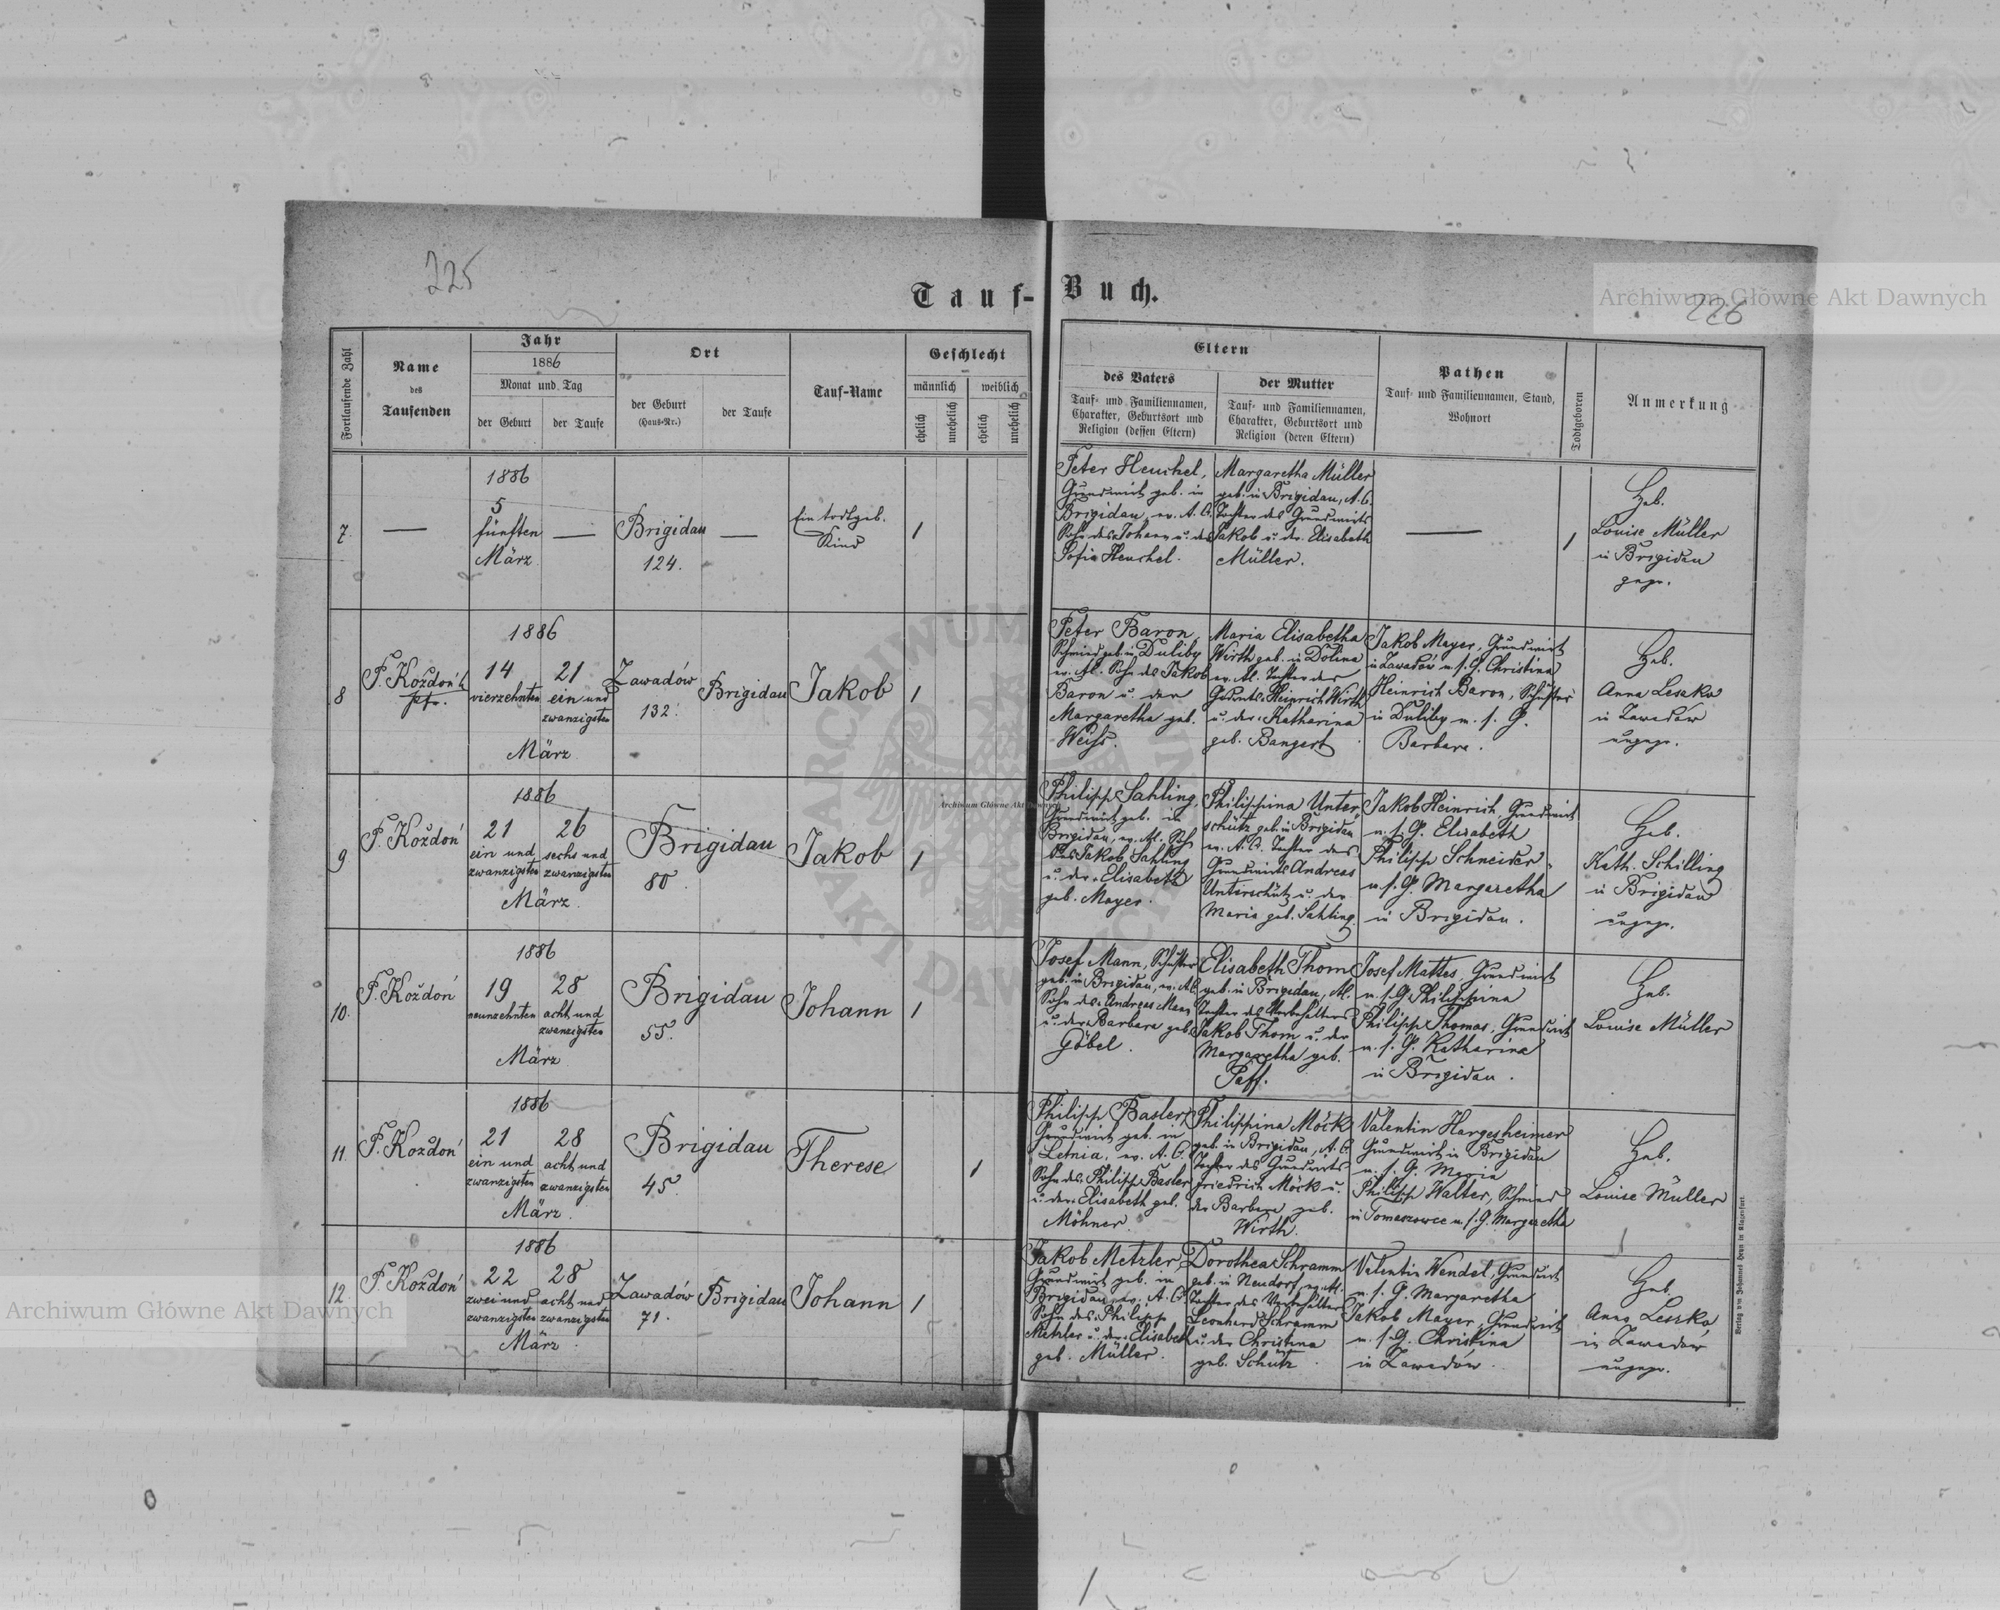 225
Tauf-Buch.
226
Archiwum Główne Akt Dawnych
Fortlaufende Zahl
Name
des
Taufenden
Jahr
1886
Monat und Tag
der Geburt
der Taufe
Ort
der Geburt
(Haus-Nr.)
der Taufe
Tauf-Name
Geschlecht
männlich
weiblich
ehelich
unehelich
ehelich
unehelich
Eltern
des Vaters
Tauf- und Familiennamen,
Charakter, Geburtsort und
Religion (dessen Eltern)
der Mutter
Tauf- und Familiennamen,
Charakter, Geburtsort und
Religion (deren Eltern)
Pathen
Tauf- und Familiennamen, Stand,
Wohnort
Todtgeboren
Anmerkung
7.
—
1886
5
fünften
März
—
Brigidau
124.
—
Ein todtgeb.
Kind
1
Peter Henchel,
Grundwirt geb. in
Brigidau, ev. A. C.
Sohn des Johann u. der
Sofia Henchel.
Margaretha Müller
geb. in Brigidau, A. C.
Tochter des Grundwirts
Jakob u. der Elisabeth
Müller.
—
1
Heb.
Louise Müller
in Brigidau
gepr.
8
F. Kożdoń
1886
14
vierzehnten
21
ein und
zwanzigsten
März
Zawadów
132.
Brigidau
Jakob
1
Peter Baron,
Schmied geb. in Duliby
ev. Al. Sohn des Jakob
Baron u. der
Margaretha geb.
Weiss.
Maria Elisabetha
Wirth geb. in Dolina
ev. Al. Tochter des
Heinrich Wirth
u. der Katharina
geb. Bangert
Jakob Mayer, Grundwirt
in Zawadów u. s. G. Christina
Heinrich Baron, Schuster
in Duliby u. s. G.
Barbara.
Heb.
Anna Lesska
in Zawadów
ungepr.
9
F. Kożdoń
1886
21
ein und
zwanzigsten
26
sechs und
zwanzigsten
März
Brigidau
80
Jakob
1
Philipp Sahling,
Grundwirt geb. in
Brigidau, ev. Al. Sohn
des Jakob Sahling
u. der Elisabeth
geb. Mayer.
Philippina Unter-
schütz geb. in Brigidau
ev. A. C. Tochter des
Grundwirts Andreas
Unterschütz u. der
Maria geb. Sahling.
Jakob Heinrich, Grundwirt
u. s. G. Elisabeth
Philipp Schneider
u. s. G. Margaretha
in Brigidau.
Heb.
Kath. Schilling
in Brigidau
ungepr.
10.
F. Kożdoń
1886
19
neunzehnten
28
acht und
zwanzigsten
März
Brigidau
55.
Johann
1
Josef Mann, Schuster
geb. in Brigidau, ev. Al.
Sohn des Andreas Mann
u. der Barbara geb.
Göbel.
Elisabeth Thom
geb. in Brigidau, Al.
Tochter des Vorbehalters
Jakob Thom u. der
Margaretha geb.
Paff.
Josef Mattes, Grundwirt
u. s. G. Philippina
Philipp Thomas, Grundwirt
u. s. G. Katharina
in Brigidau.
Heb.
Louise Müller
11.
F. Kożdoń
1886
21
ein und
zwanzigsten
28
acht und
zwanzigsten
März
Brigidau
45.
Therese
1
Philipp Basler,
Grundwirt geb. in
Letnia, ev. A. C.
Sohn des Philipp Basler
u. der Elisabeth geb.
Möhner.
Philippina Möck
geb. in Brigidau, A. C.
Tochter des Grundwirts
Friedrich Möck u.
der Barbara geb.
Wirth.
Valentin Hargesheimer
Grundwirt in Brigidau
u. s. G. Maria
Philipp Walter, Schmied
in Tomaszowce u. s. G. Margaretha
Heb.
Louise Müller
12.
F. Kożdoń
1886
22
zwei und
zwanzigsten
28
acht und
zwanzigsten
März
Zawadów
71.
Brigidau
Johann
1
Jakob Metzler,
Grundwirt geb. in
Brigidau, ev. A. C.
Sohn des Philipp
Metzler u. der Elisabeth
geb. Müller.
Dorothea Schramm
geb. in Neudorf, ev. Al.
Tochter des Vorbehalters
Leonhard Schramm
u. der Christina
geb. Schütz
Valentin Wendel, Grundwirt
u. s. G. Margaretha
Jakob Mayer, Grundwirt
u. s. G. Christina
in Zawadów.
Heb.
Anna Lesska
in Zawadów
ungepr.
Verlag von Johannes Heyn in Klagenfurt.
Archiwum Główne Akt Dawnych
Archiwum Główne Akt Dawnych
ARCHIWUM
AKT DAWNYCH